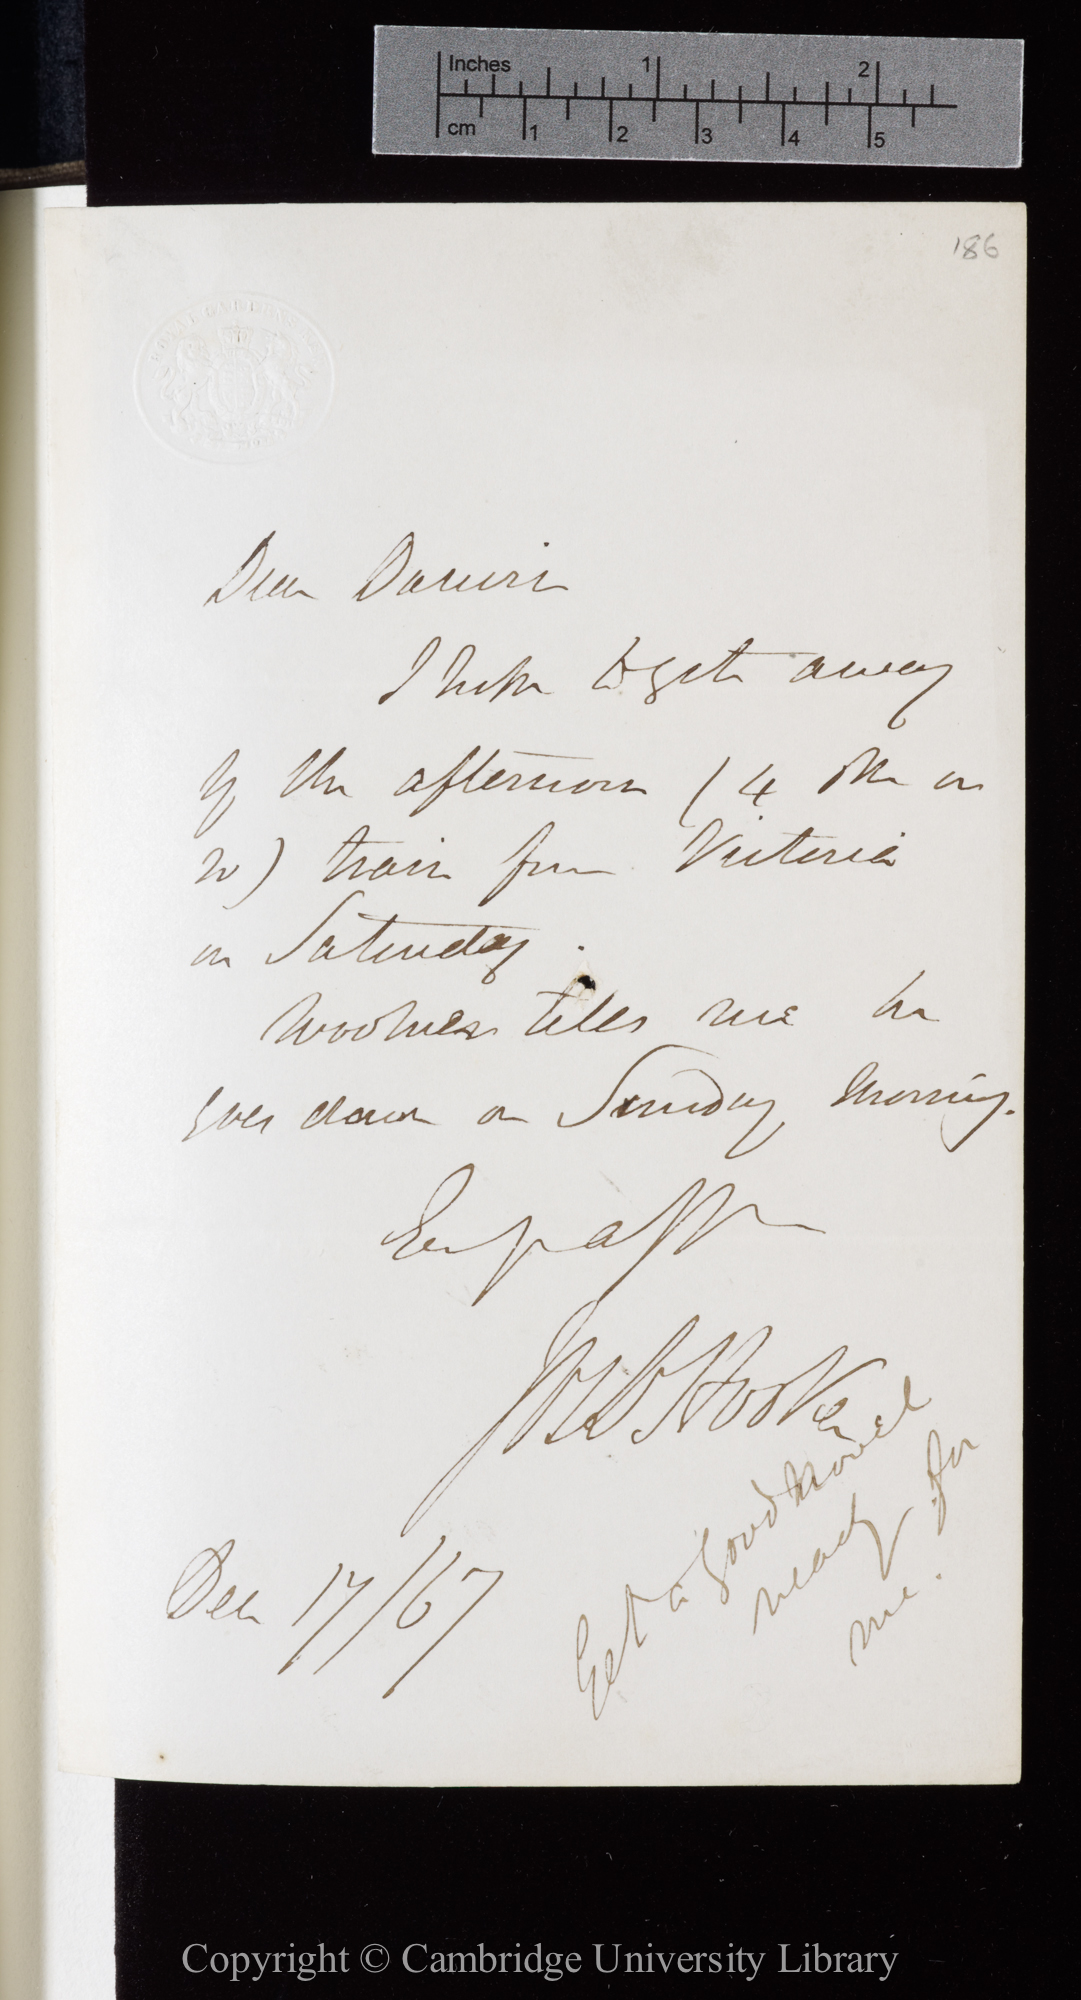 Inches
1
2
cm
1
2
3
4
5
186
ROYAL GARDENS
Dear Darwin
I hope to get away
by the afternoon (4 ock or
so) train from Victoria
on Saturday.
Woolner tells me he
goes down on Sunday morning.
Ever yr aff
Jos D Hooker
Dec 17/67
Get a good novel
ready for
me.
Copyright © Cambridge University Library